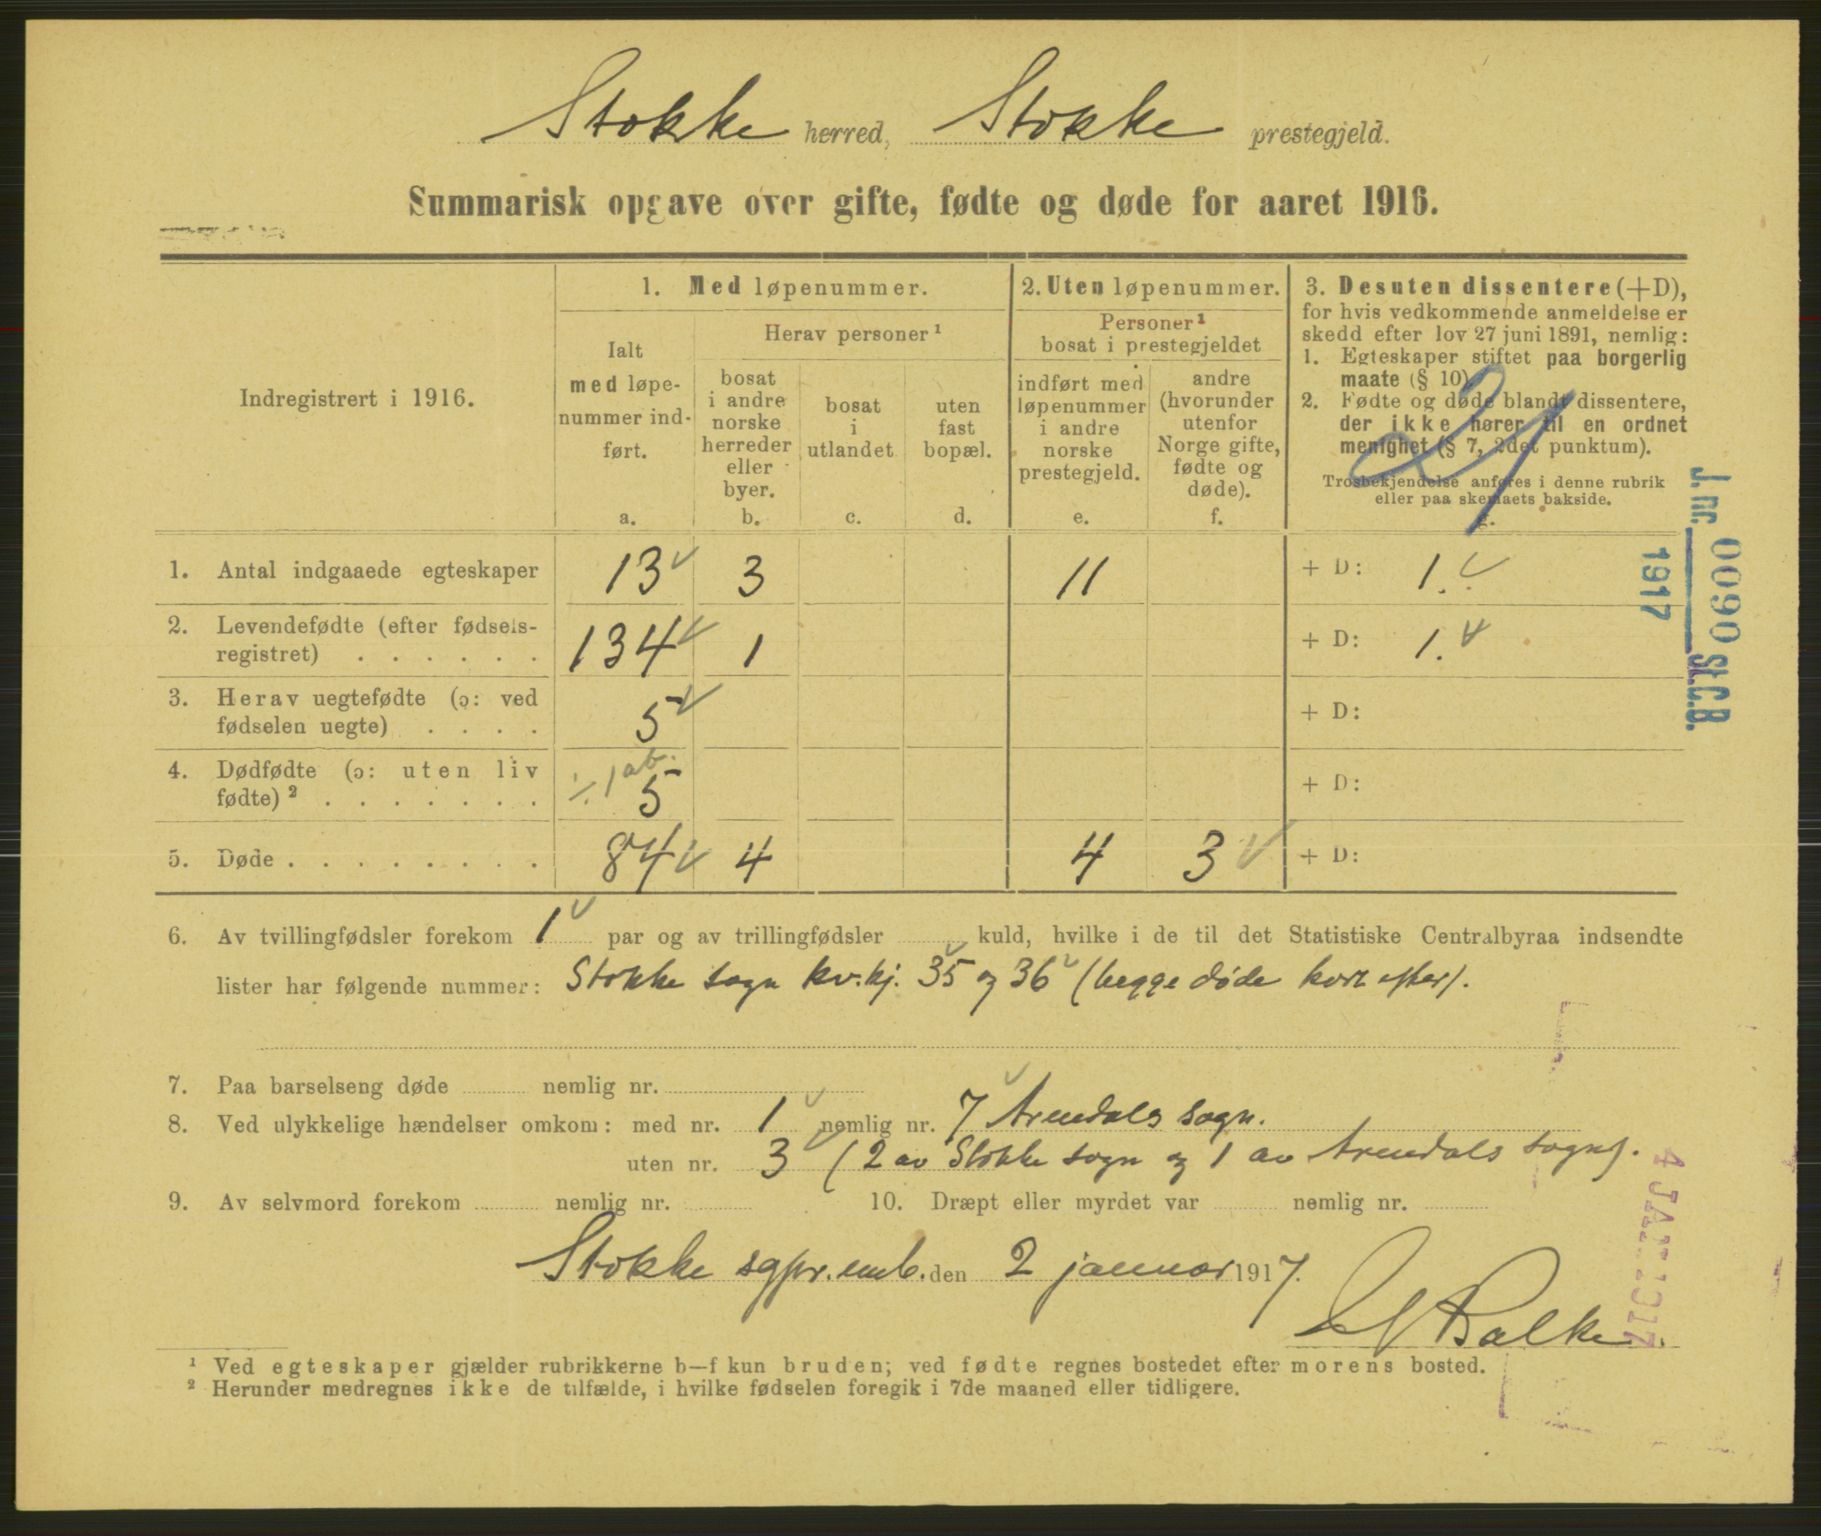 Stokke herred, Stokke prestegjeld.
Summarisk opgave over gifte, fødte og døde for aaret 1916.
Indregistrert i 1916.
1. Med løpenummer.
Ialt
med løpe-
nummer ind-
ført.
a.
Herav personer ¹
bosat
i andre
norske
herreder
eller
byer.
b.
bosat
i
utlandet
c.
uten
fast
bopæl.
d.
2. Uten løpenummer.
Personer ¹
bosat i prestegjeldet
indført med
løpenummer
i andre
norske
prestegjeld.
e.
andre
(hvorunder
utenfor
Norge gifte,
fødte og
døde).
f.
3. Desuten dissentere (+D),
for hvis vedkommende anmeldelse er
skedd efter lov 27 juni 1891, nemlig:
1. Egteskaper stiftet paa borgerlig
maate (§ 10).
2. Fødte og døde blandt dissentere,
der ikke hører til en ordnet
menighet (§ 7, 2det punktum).
Trosbekjendelse anføres i denne rubrik
eller paa skemaets bakside.
g.
21
1. Antal indgaaede egteskaper 13 3 11 + D: 1.
2. Levendefødte (efter fødsels-
registret) . . . . . . 134 1 + D: 1.
3. Herav uegtefødte (ɔ: ved
fødselen uegte) . . . . 5 + D:
4. Dødfødte (ɔ: uten liv
÷ 1 ab.
fødte) ² . . . . . . . 5 + D:
5. Døde . . . . . . . . 84 4 4 3 + D:
6. Av tvillingfødsler forekom 1 par og av trillingfødsler kuld, hvilke i de til det Statistiske Centralbyraa indsendte
lister har følgende nummer: Stokke sogn kv.kj. 35 og 36 (begge døde kort efter).
7. Paa barselseng døde nemlig nr.
8. Ved ulykkelige hændelser omkom: med nr. 1 nemlig nr. 7 Arendals sogn.
uten nr. 3 (2 av Stokke sogn og 1 av Arendals sogn).
9. Av selvmord forekom nemlig nr. 10. Dræpt eller myrdet var nemlig nr.
Stokke sgpr. emb. den 2 januar 1917.
Balke.
¹ Ved egteskaper gjælder rubrikkerne b—f kun bruden; ved fødte regnes bostedet efter morens bosted.
² Herunder medregnes ikke de tilfælde, i hvilke fødselen foregik i 7de maaned eller tidligere.
J. nr. 00690 St.C.B.
1917
4 JAN 1917